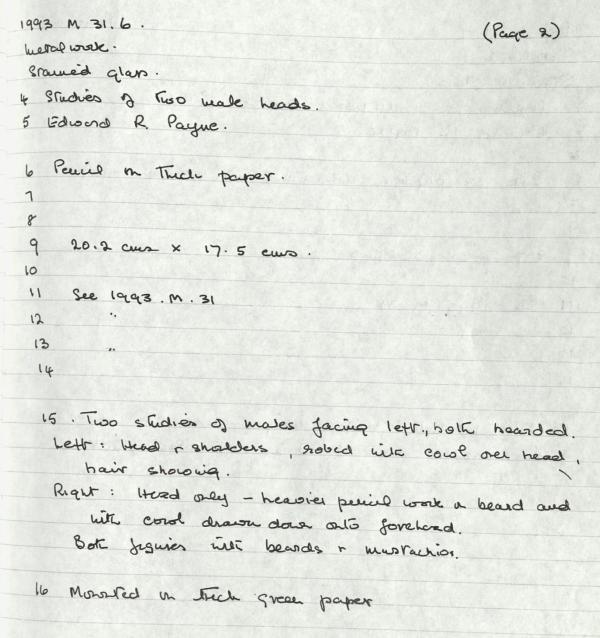 1993 M 31.6.
(Page 2)
Metalwork.
Stained glass.
4 Studies of Two male heads.
5 Edward R. Payne.
6 Pencil on Thick paper.
7
8
9 20.2 cms x 17.5 cms.
10
11 See 1993.M.31
12 "
13 "
14
15. Two studies of males facing left, both bearded.
Left: Head & shoulders, robed with cowl over head,
hair showing.
Right: Head only - heavier pencil work on beard and
with cowl drawn down onto forehead.
Both figures with beards & mustachios.
16 Mounted on thick green paper